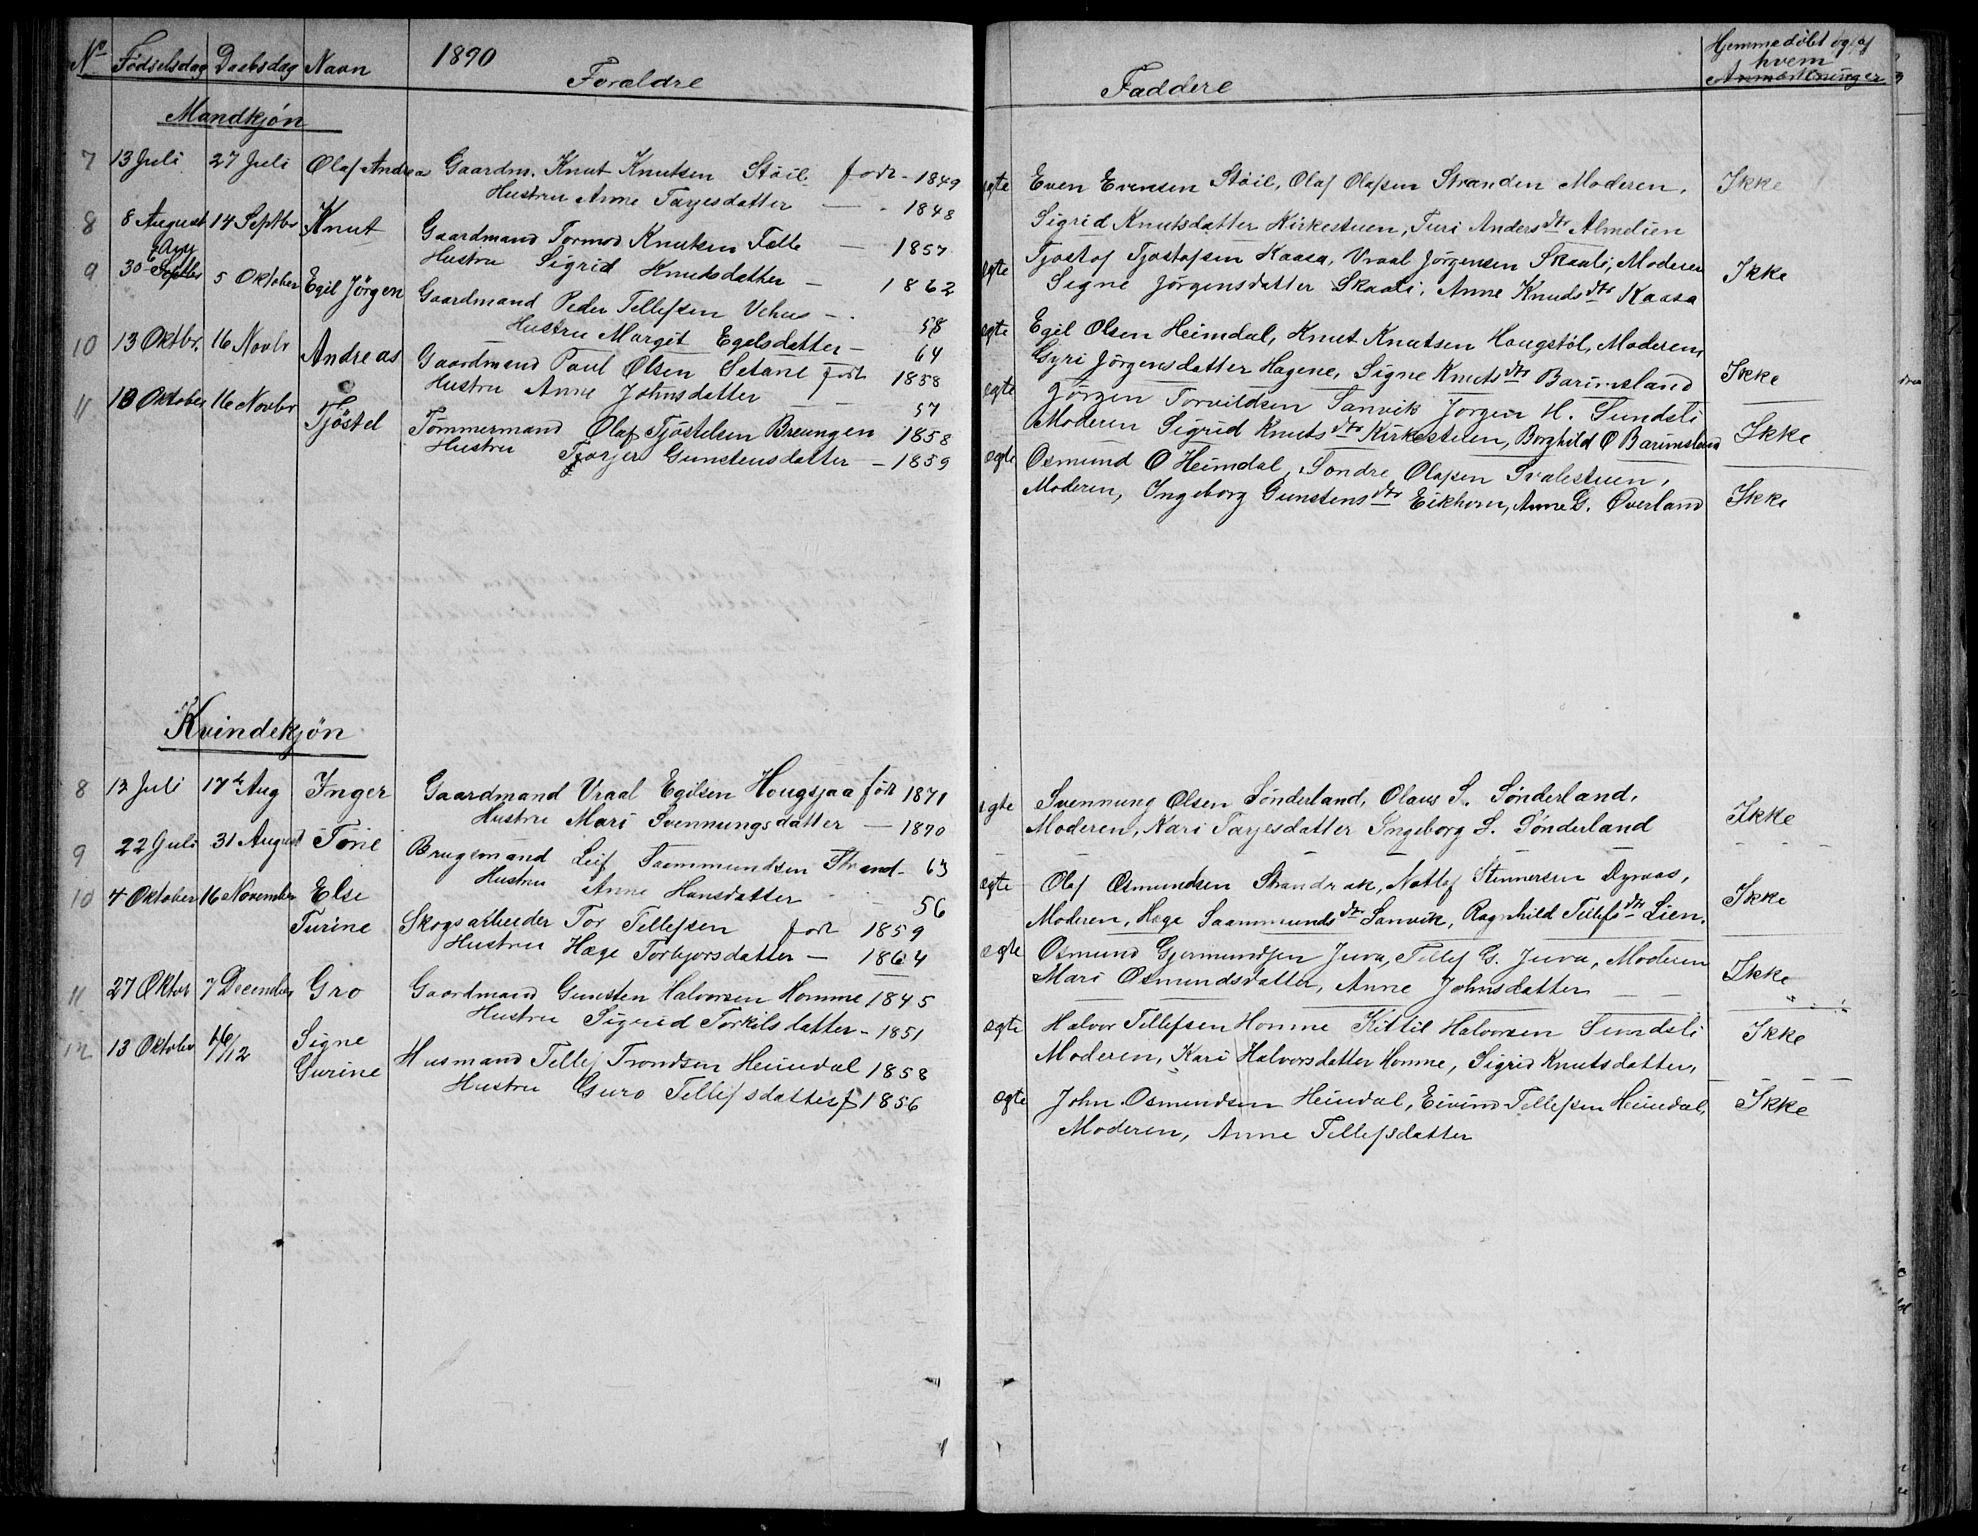 No Fødselsdag Daabsdag Navn 1890 Forældre
Mandkjøn
7 13 Juli 27 Juli Olaf Andrea Gaardm. Knut Knutsen Støil født 1849
Hustru Anne Tarjesdatter — 1848
8 8 August 14 Septbr Knut Gaardmand Tormod Knutsen Falle — 1857
Hustru Sigrid Knutsdatter — 1862
9 30 Septbr Aug 5 Oktober Egil Jörgen Gaardmand Peder Tellefsen Vehus — 58
Hustru Margit Egelsdatter — 64
10 13 Oktbr. 16 Novbr Andreas Gaardmand Paul Olsen Setane født 1858
Hustru Anne Johnsdatter — 57
11 18 Oktober 16 Novbr Tjöstel Tömmermand Olaf Tjöstelsen Breungen 1858
Hustru Torjer Gunstensdatter — 1859
Kvindekjøn
8 13 Juli 17de Aug Inger Gaardmand Vraal Egilsen Hougsjaa født 1871
Hustru Mari Svennungsdatter — 1870
9 22 Juli 31 August Tone Brugsmand Leif Saammundsen Strand — 63
Hustru Anne Hansdatter 56
10 4 Oktober 16 November Else Turine Skogsarbeider Tor Tellefsen født 1859
Hustru Hæge Torbjorsdatter — 1864
11 27 Oktbr 7 December Gro Gaardmand Gunsten Halvorsen Homme 1845
Hustru Sigrid Torkilsdatter — 1851
12 13 Oktober 16/12 Signe Gurine Husmand Tellef Trondsen Heimdal 1858
Hustru Guro Tellefsdatter f 1856
Faddere
Hjemmedöbt og af
hvem
Anmærkninger
ægte Even Evensen Støil, Olaf Olafsen Stranden Moderen, Ikke
Sigrid Knutsdatter Kirkestuen, Turi Andersdtr Almelien
ægte Tjostof Tjostofsen Kaasa, Vraal Jörgensen Skaali, Moderen Ikke
Signe Jörgensdatter Skaali, Anne Knudsdtr Kaasa
ægte Egil Olsen Heimdal, Knut Knutsen Hougstöl, Moderen,
Gyri Jörgensdatter Hagene, Signe Knutsdtr Barimsland Ikke
ægte Jörgen Torvildsen Sanvik Jorgen H. Sundsli
Moderen Sigrid Knutsdtr Kirkestuen, Borghild O Barimsland Ikke
ægte Osmund O Heimdal, Sondre Olafsen Svalestuen,
Moderen, Ingeborg Gunstensdtr Eikhom, Anne G. Overland Ikke
ægte Svennung Olsen Sönderland, Olaus S. Sönderland, Ikke
Moderen, Kari Tarjesdatter Ingeborg S. Sönderland
ægte Olaf Osmundsen Strandrak, Notlef Stennersen Dynaas, Ikke
Moderen, Hæge Saammundsdtr Sanvik, Ragnhild Tellefsdtr Lien.
ægte Osmund Gjermundsen Juva, Tellef G. Juva, Moderen Ikke
Mari Osmundsdatter, Anne Johnsdatter
ægte Halvor Tellefsen Homme Kittil Halvorsen Sundsli Ikke
Moderen, Kari Halvorsdatter Homme, Sigrid Knutsdatter,
ægte John Osmundsen Heimdal, Eivind Tellefsen Heimdal, Ikke
Moderen, Anne Tellefsdatter